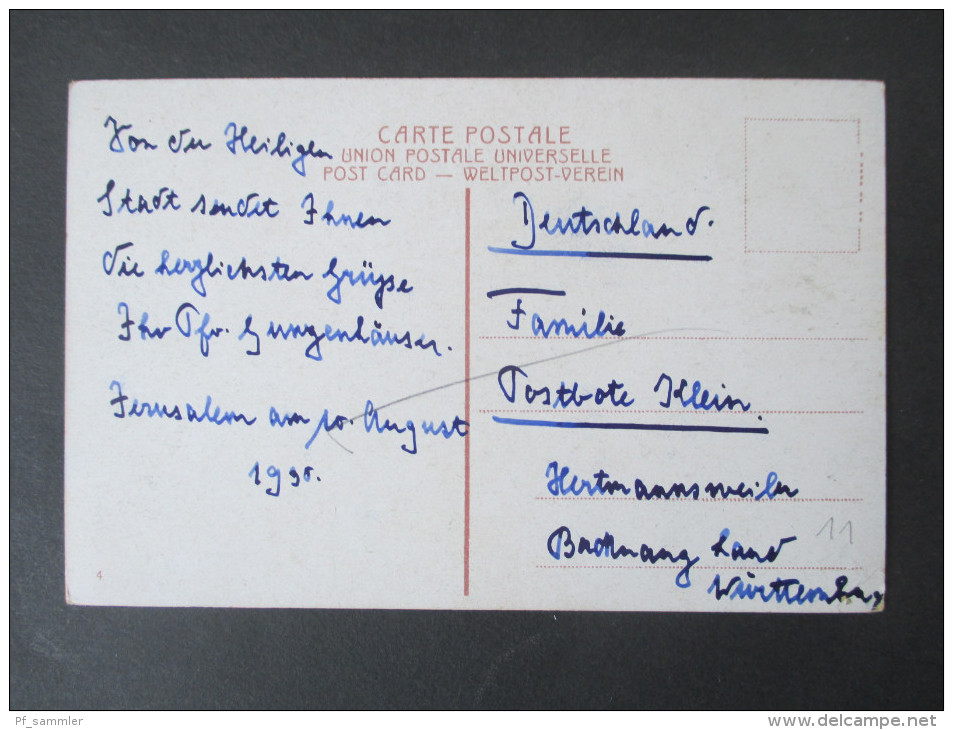 CARTE POSTALE
UNION POSTALE UNIVERSELLE
POST CARD — WELTPOST-VEREIN
Von der Heiligen
Stadt sendet Ihnen
die herzlichsten Grüsse
Ihr Pfr. Gungenhäuser.
Jerusalem am 10. August
1930.
Deutschland.
Familie
Postbote Klein.
Hertmannsweiler
Backnang Land
Württemberg
11
4
Pf_sammler
www.delcampe.net